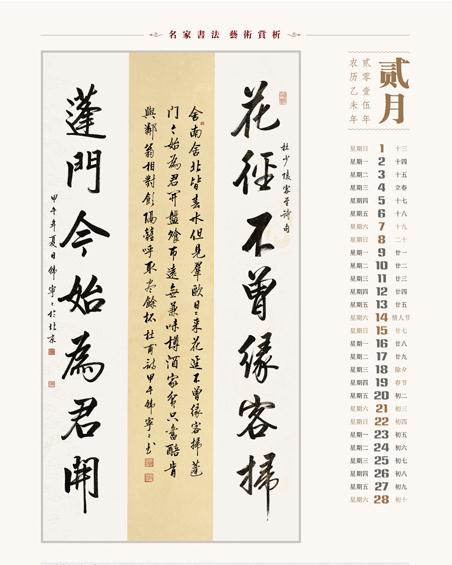 名家書法 藝術賞析
贰月
贰零壹伍年
农历乙未年
星期日 1 十三
星期一 2 十四
星期二 3 十五
星期三 4 立春
星期四 5 十七
星期五 6 十八
星期六 7 十九
星期日 8 二十
星期一 9 廿一
星期二 10 廿二
星期三 11 廿三
星期四 12 廿四
星期五 13 廿五
星期六 14 情人节
星期日 15 廿七
星期一 16 廿八
星期二 17 廿九
星期三 18 除夕
星期四 19 春节
星期五 20 初二
星期六 21 初三
星期日 22 初四
星期一 23 初五
星期二 24 初六
星期三 25 初七
星期四 26 初八
星期五 27 初九
星期六 28 初十
杜少陵客至诗句
花徑不曾緣客掃
舍南舍北皆春水但見羣歐日日来花迳不曾缘客掃蓬
門今始為君開盤飧市遠無兼味樽酒家貧只舊醅肯
與鄰翁相對飲隔籬呼取盡餘杯杜甫詩甲午
蓬門今始為君開
甲午年夏日於北京